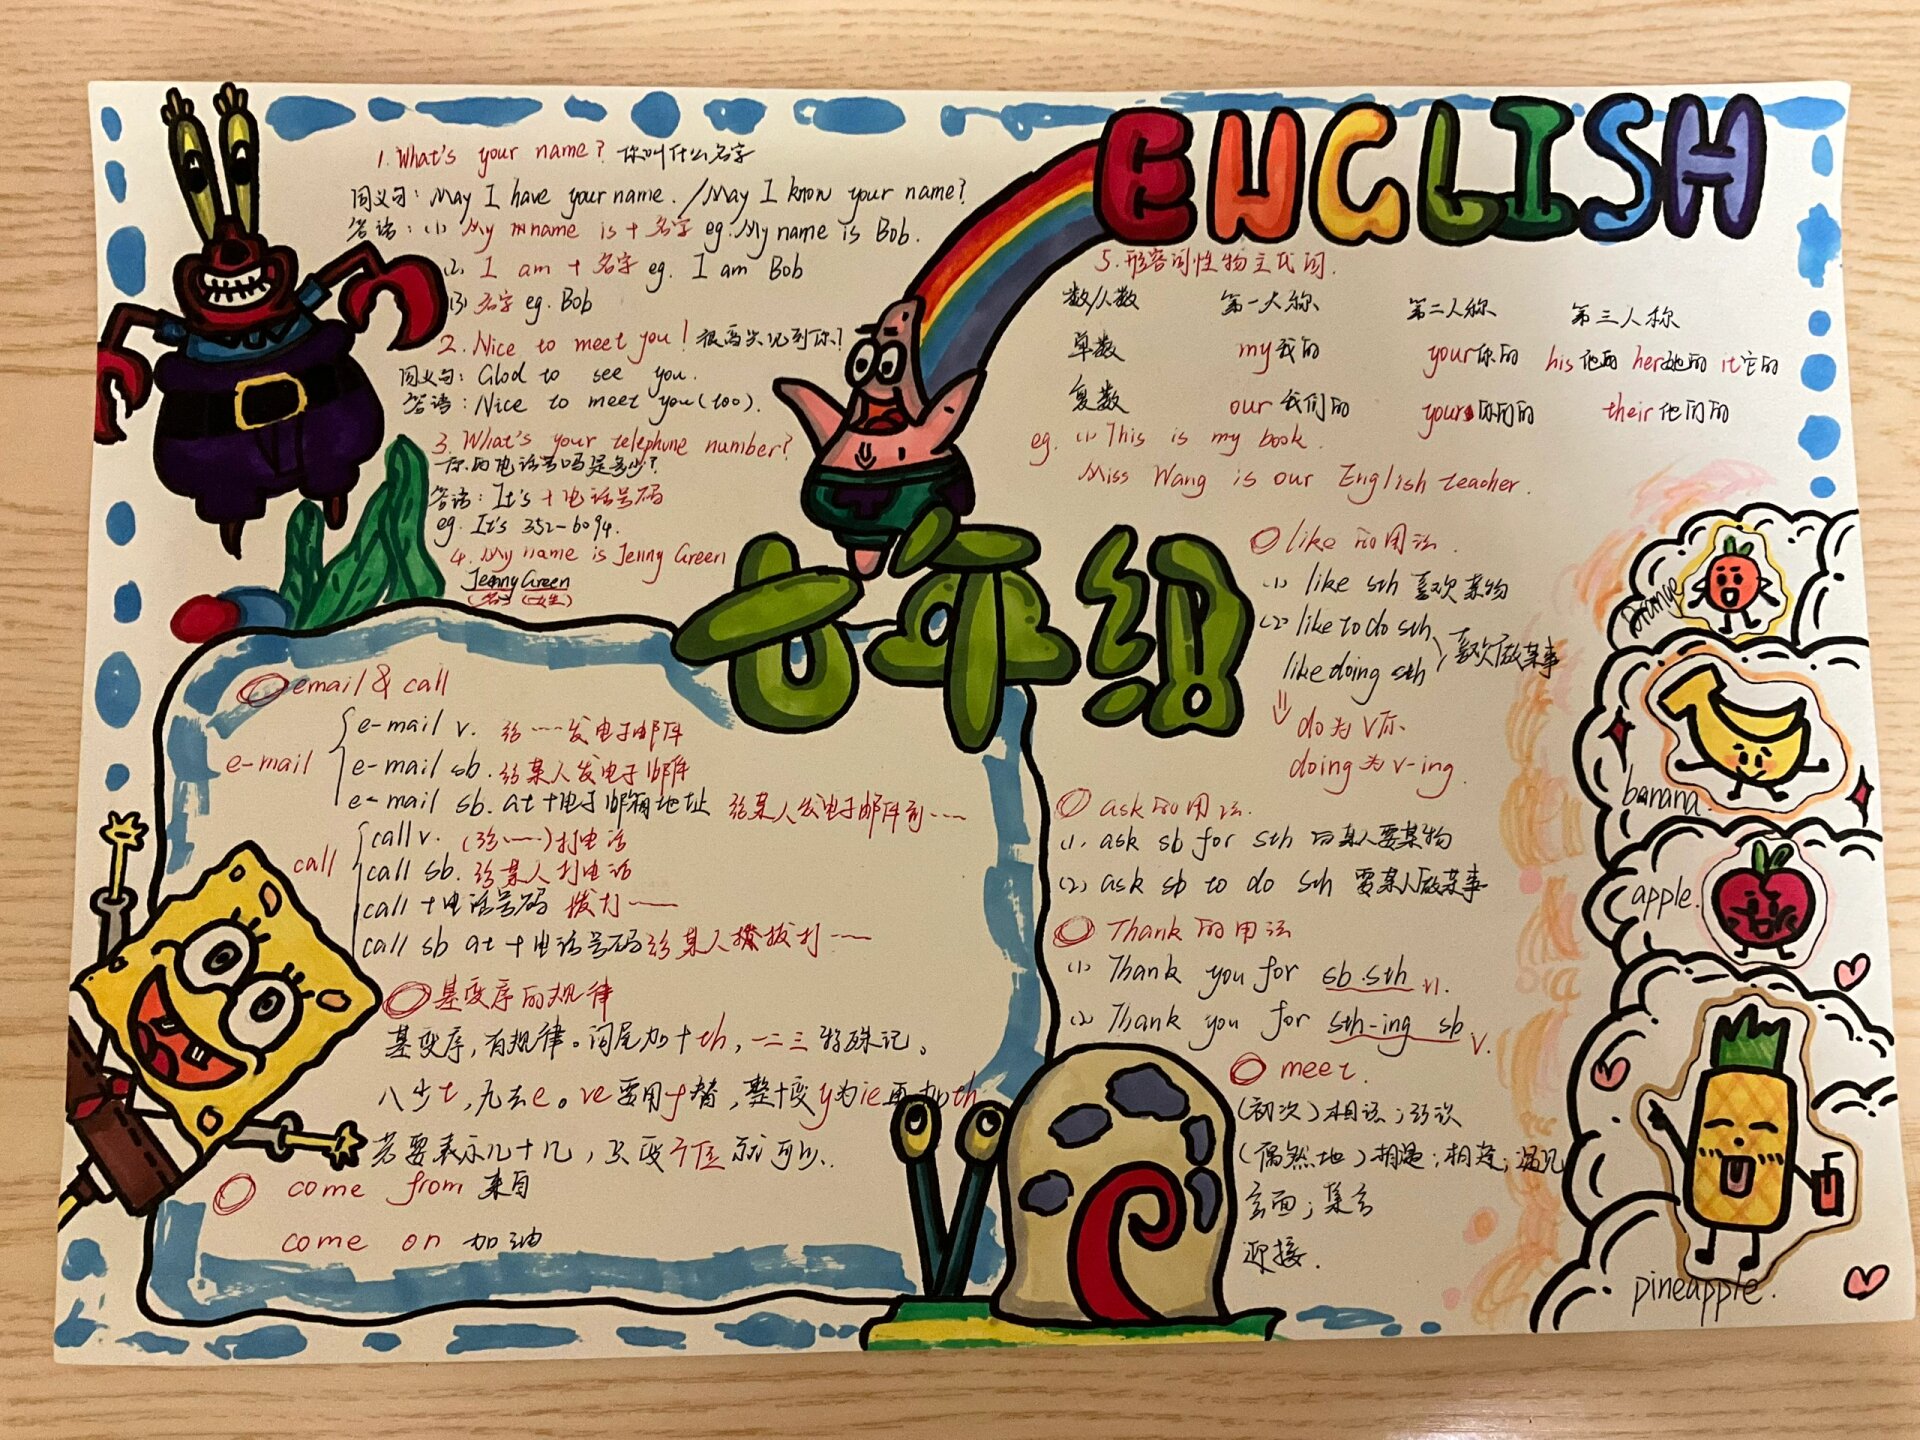 ENGLISH
七年级
1. What's your name? 你叫什么名字
同义句: May I have your name. / May I know your name?
答语: (1) My name is + 名字 eg. My name is Bob.
(2) I am + 名字 eg. I am Bob
(3) 名字 eg. Bob
2. Nice to meet you! 很高兴见到你?
同义句: Glod to see you.
答语: Nice to meet you (too).
3. What's your telephone number?
你的电话号吗是多少?
答语: It's + 电话号码
eg. It's 352-6094.
4. My name is Jenny Green
Jenny Green
(名) (姓)
5. 形容词性物主代词.
数/人数 第一人称 第二人称 第三人称
单数 my我的 your你的 his他的 her她的 it它的
复数 our我们的 your你们的 their他们的
eg. (1) This is my book.
Miss Wang is our English teacher.
like的用法.
(1) like sth 喜欢某物
(2) like to do sth
like doing sth 喜欢做某事
do为v原
doing为v-ing.
ask的用法.
(1). ask sb for sth 向某人要某物
(2) ask sb to do sth 要某人做某事
Thank的用法
(1) Thank you for sb.sth n.
(2) Thank you for sth-ing sb v.
meet.
(初次)相识;结识
(偶然地)相遇;相逢;遇见
会面;集合
迎接.
email & call
e-mail
e-mail v. 给……发电子邮件
e-mail sb. 给某人发电子邮件
e-mail sb. at +电子邮箱地址 给某人发电子邮件到……
call
call v. (给……)打电话
call sb. 给某人打电话
call + 电话号码 拨打……
call sb at + 电话号码 给某人拨打……
基变序的规律
基变序,有规律。词尾加+th,一二三特殊记。
八少t,九去e。ve要用f替,整十变y为ie再加th
若要表示几十几,只变个位就可以.
come from 来自
come on 加油
orange
banana.
apple.
pineapple.